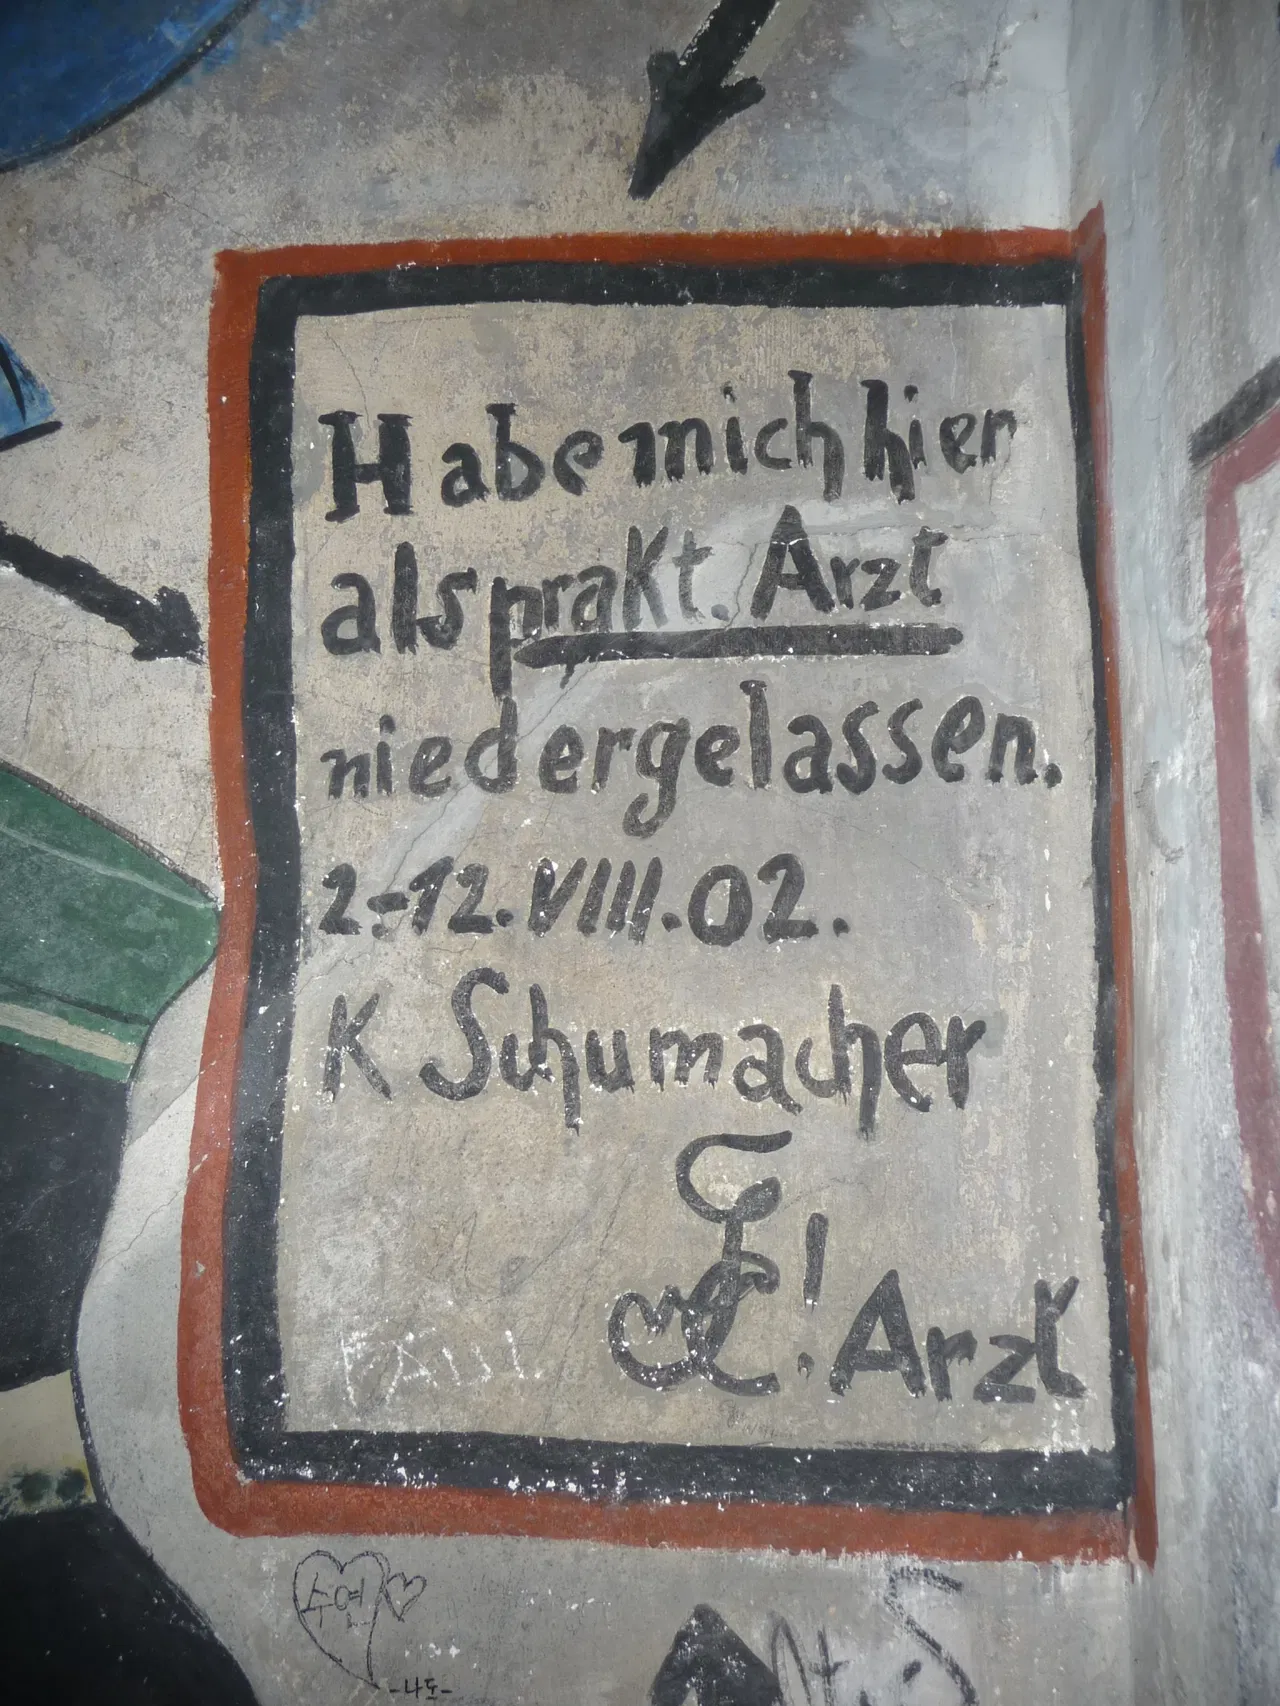 Habe mich hier
als prakt. Arzt
niedergelassen.
2.-12. VIII. 02.
K Schumacher
! Arzt
수연
-나도-